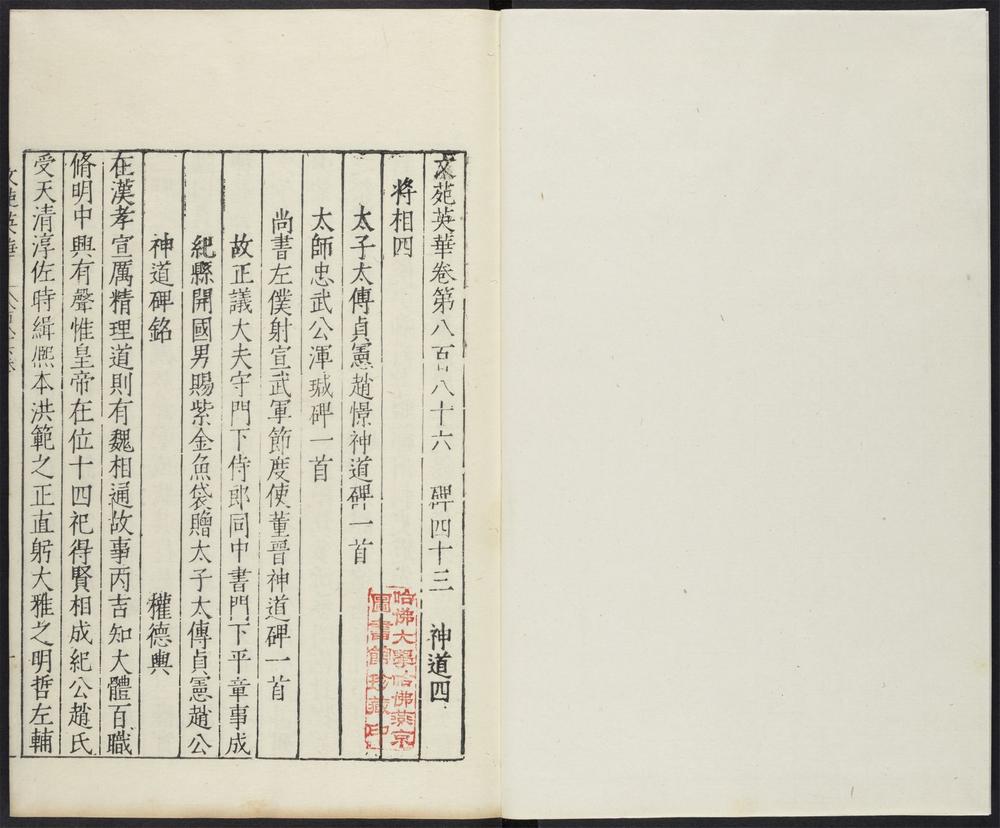 文苑英華卷第八百八十六 碑四十三 神道四
將相四
太子太傅貞憲趙憬神道碑一首
太師忠武公渾瑊碑一首
尚書左僕射宣武軍節度使董晉神道碑一首
故正議大夫守門下侍郎同中書門下平章事成
紀縣開國男賜紫金魚袋贈太子太傅貞憲趙公
神道碑銘 權德輿
在漢孝宣厲精理道則有魏相通故事丙吉知大體百職
脩明中興有聲惟皇帝在位十四祀得賢相成紀公趙氏
受天清淳佐時緝熈本洪範之正直躬大雅之明哲左輔
文苑英華
哈佛大學哈佛燕京
圖書館珍藏印